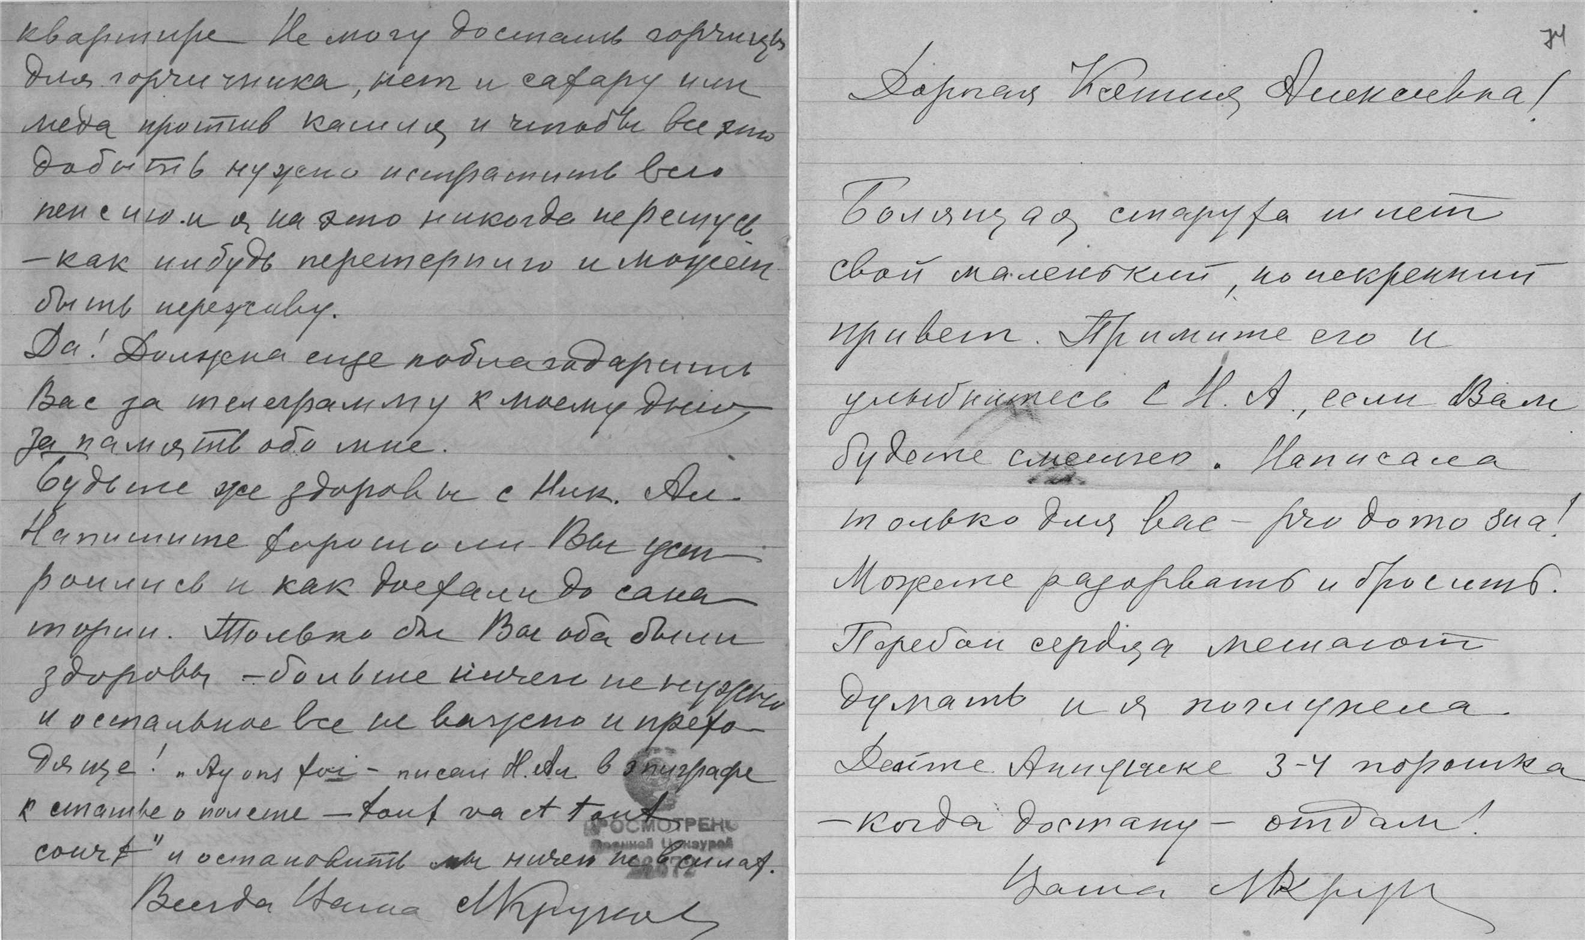 квартире Не могу достать горчицы
для горчичника, нет и сахару или
меда против кашля и чтобы все это
добыть нужно истратить всю
пенсию и я на это никогда не решусь
– как нибудь перетерплю и может
быть переживу.
Да! Должна еще поблагодарить
Вас за телеграмму к моему дню,
за память обо мне.
Будьте же здоровы с Ник. Ал.
Напишите хорошо ли Вы уст
роились и как доехали до сана
тории. Только бы Вы оба были
здоровы – больше ничего не нужно
и остальное все не важно и прехо–
дяще! „Ayons foi – писал Н. Ал в эпиграфе
к статье о полете – tout va et tout
court" и остановить мы ничего не в силах.
ПРОСМОТРЕНО
Военной Цензурой
Всегда Ваша МКруков
74
Дорогая Ксения Алексеевна!
Болящая старуха шлет
свой маленький, но искренний
привет. Примите его и
улыбнитесь с Н. А., если Вам
будете смешно. Написала
только для вас – pro domo sua!
Можете разорвать и бросить.
Перебои сердца мешают
думать и я поглупела
Дайте Аннушке 3–4 порошка
– когда достану – отдам!
Ваша МКрук